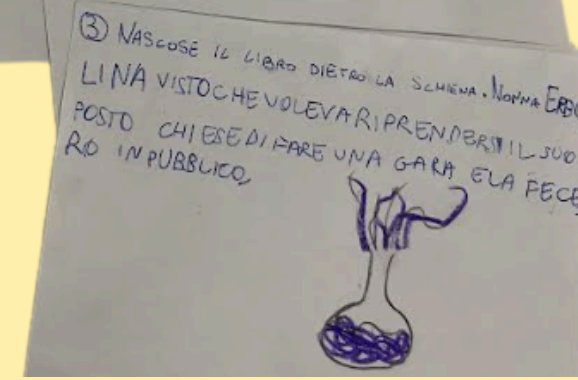 ③ NASCOSE IL LIBRO DIETRO LA SCHIENA. NONNA ERBO
LINA VISTO CHE VOLEVA RIPRENDERSI IL SUO
POSTO CHIESE DI FARE UNA GARA E LA FECE
RO IN PUBBLICO,